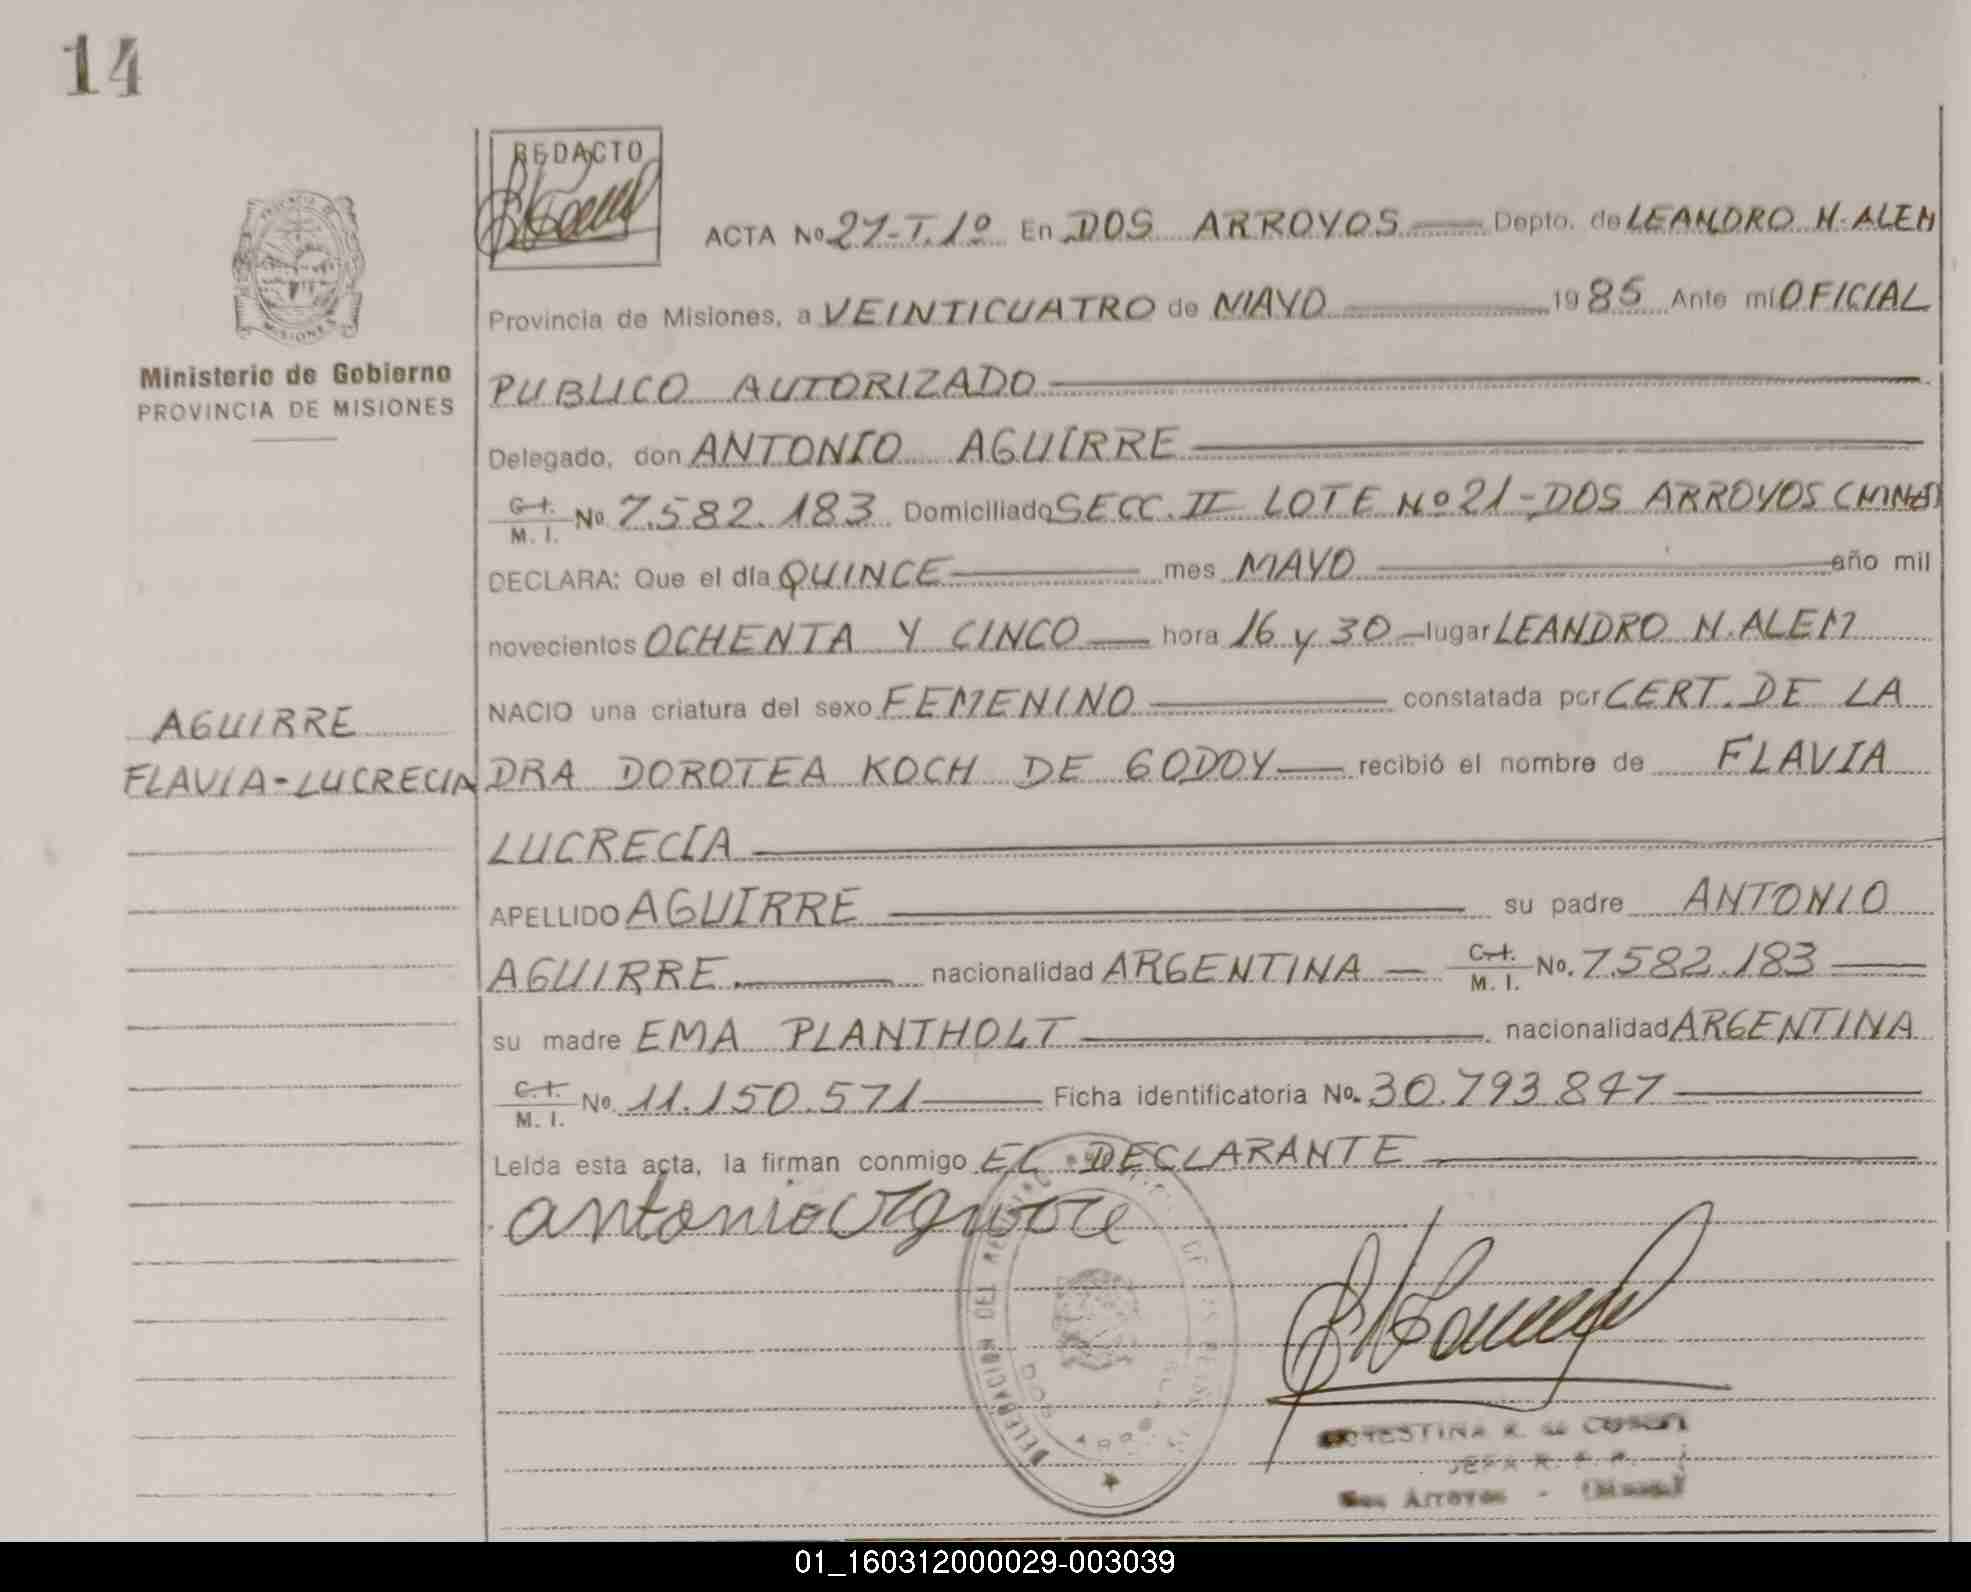 14
REDACTO
ACTA No 27-T.1º En DOS ARROYOS Depto. de LEANDRO N. ALEM
Provincia de Misiones, a VEINTICUATRO de MAYO 1985 Ante mi OFICIAL
Ministerio de Gobierno
PROVINCIA DE MISIONES
PUBLICO AUTORIZADO
Delegado, don ANTONIO AGUIRRE
C.I. M. I. No 7.582.183 Domiciliado SECC. II LOTE Nº 21-DOS ARROYOS (MNES)
DECLARA: Que el día QUINCE mes MAYO año mil
novecientos OCHENTA Y CINCO hora 16 y 30 lugar LEANDRO N. ALEM
NACIO una criatura del sexo FEMENINO constatada por CERT. DE LA
AGUIRRE
FLAVIA-LUCRECIA
DRA DOROTEA KOCH DE GODOY recibió el nombre de FLAVIA
LUCRECIA
APELLIDO AGUIRRE su padre ANTONIO
AGUIRRE nacionalidad ARGENTINA C.I. M. I. No. 7.582.183
su madre EMA PLANTHOLT nacionalidad ARGENTINA
C.I. M. I. No 11.150.571 Ficha identificatoria No. 30.793.847
Leída esta acta, la firman conmigo EL DECLARANTE
antonio Aguirre
DELEGACION DEL
DOS
JEFA R.
Dos Arroyos - (Misiones)
01_160312000029-003039